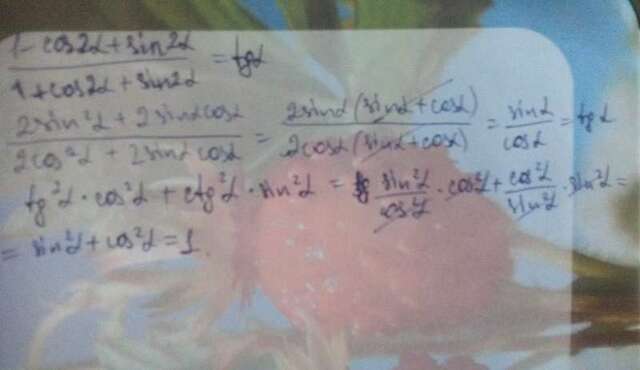 (1 - cos2α + sin2α) / (1 + cos2α + sin2α) = tgα
(2sin²α + 2sinαcosα) / (2cos²α + 2sinαcosα) = 2sinα(sinα + cosα) / 2cosα(sinα + cosα) = sinα / cosα = tgα
tg²α · cos²α + ctg²α · sin²α = sin²α / cos²α · cos²α + cos²α / sin²α · sin²α =
= sin²α + cos²α = 1.